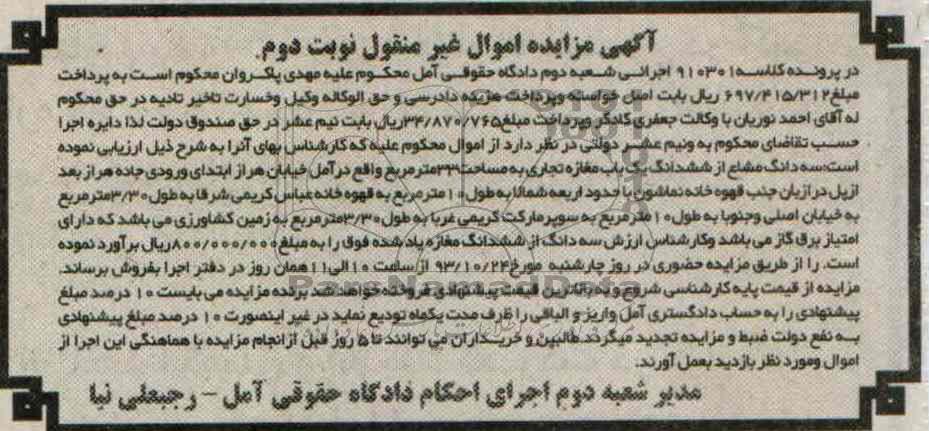 آگهی مزایده اموال غیر منقول نوبت دوم
در پرونده کلاسه ۹۱۰۳۰۱ اجرائی شعبه دوم دادگاه حقوقی آمل محکوم علیه مهدی پاکروان محکوم است به پرداخت
مبلغ ۶۹۷/۴۱۵/۳۱۲ ریال بابت اصل خواسته وپرداخت هزینه دادرسی و حق الوکاله وکیل وخسارت تاخیر تادیه در حق محکوم
له آقای احمد نوریان با وکالت جعفری کلاگر وپرداخت مبلغ ۳۴/۸۷۰/۷۶۵ ریال بابت نیم عشر در حق صندوق دولت لذا دایره اجرا
حسب تقاضای محکوم به ونیم عشر دولتی در نظر دارد از اموال محکوم علیه که کارشناس بهای آنرا به شرح ذیل ارزیابی نموده
است:سه دانگ مشاع از ششدانگ یک باب مغازه تجاری به مساحت ۳۳ مترمربع واقع در آمل خیابان هراز ابتدای ورودی جاده هراز بعد
ازپل درازبان جنب قهوه خانه نماشون با حدود اربعه شمالا به طول ۱۰ مترمربع به قهوه خانه عباس کریمی شرقا به طول ۳/۳۰ مترمربع
به خیابان اصلی وجنوبا به طول ۱۰ مترمربع به سوپرمارکت کریمی غربا به طول ۳/۳۰ مترمربع به زمین کشاورزی می باشد که دارای
امتیاز برق گاز می باشد وکارشناس ارزش سه دانگ از ششدانگ مغازه یادشده فوق را به مبلغ ۸۰۰/۰۰۰/۰۰۰ ریال برآورد نموده
است. را از طریق مزایده حضوری در روز چارشنبه مورخ ۹۳/۱۰/۲۴ از ساعت ۱۰ الی ۱۱ همان روز در دفتر اجرا بفروش برساند.
مزایده از قیمت پایه کارشناسی شروع وبه بالاترین قیمت پیشنهادی فروخته خواهد شد برنده مزایده می بایست ۱۰ درصد مبلغ
پیشنهادی را به حساب دادگستری آمل واریز و الباقی را ظرف مدت یکماه تودیع نماید در غیر اینصورت ۱۰ درصد مبلغ پیشنهادی
به نفع دولت ضبط و مزایده تجدید میگردد طالبین و خریداران می توانند تا ۵ روز قبل از انجام مزایده با هماهنگی این اجرا از
اموال ومورد نظر بازدید بعمل آورند.
مدیر شعبه دوم اجرای احکام دادگاه حقوقی آمل - رجبعلی نیا